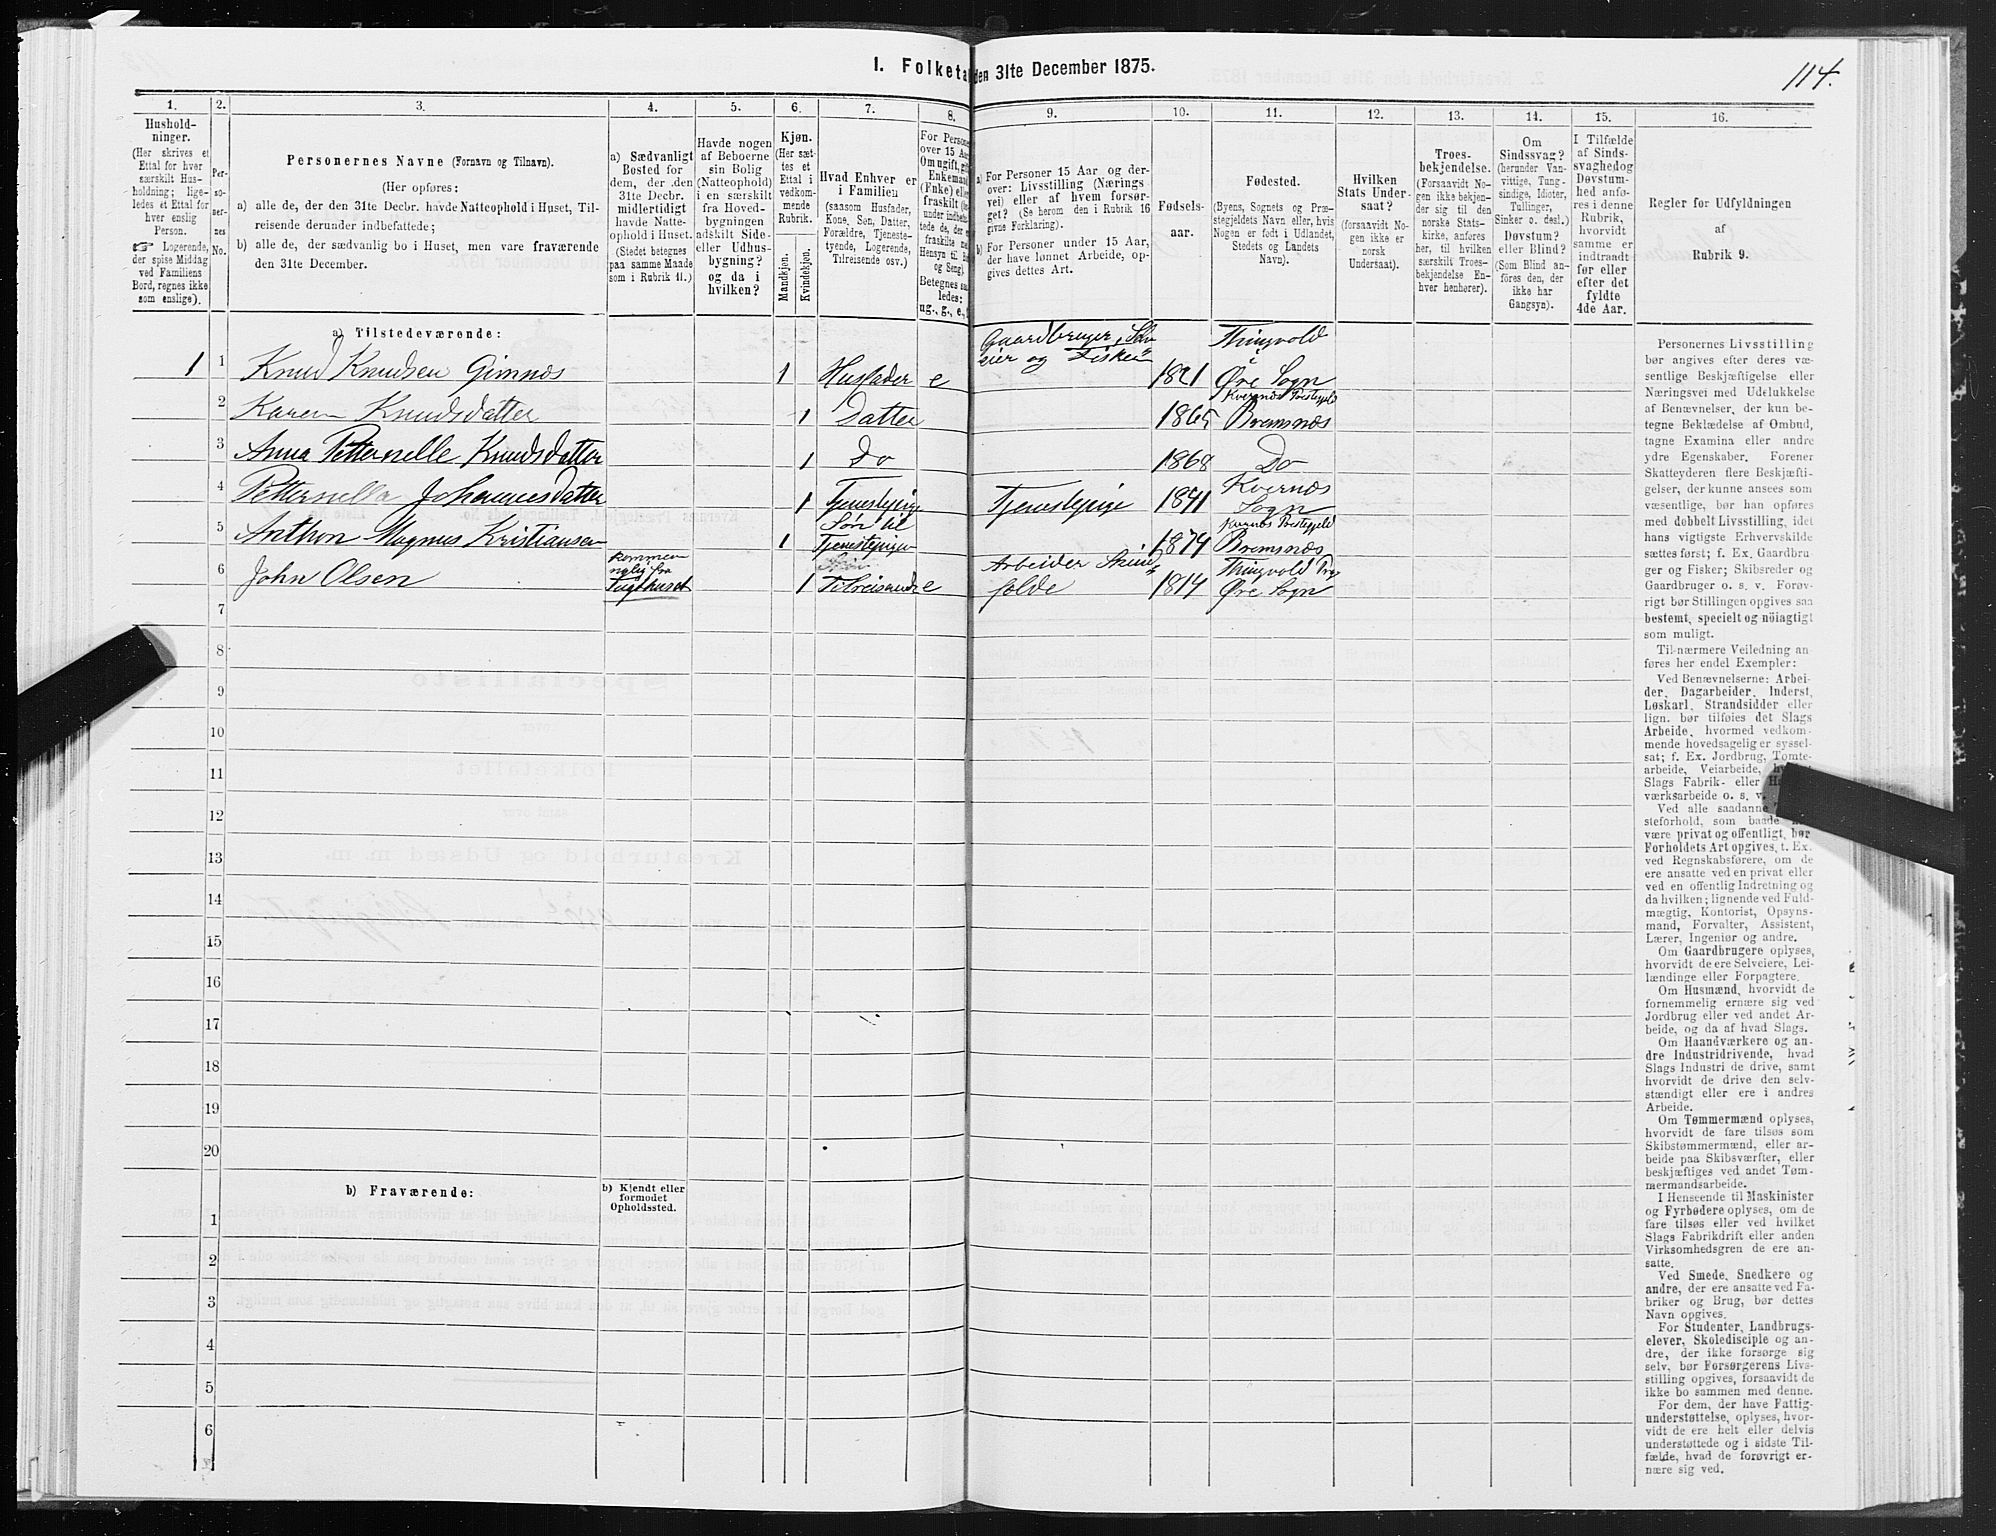 I. Folketal den 31te December 1875.
114.
1.
Hushold-
ninger.
(Her skrives et
Ettal for hver
særskilt Hus-
holdning; lige-
ledes et Ettal for
hver enslig
Person.
☞ Logerende,
der spise Middag
ved Familiens
Bord, regnes ikke
som enslige).
2.
Per-
so-
ner-
nes
No.
3.
Personernes Navne (Fornavn og Tilnavn).
(Her opføres:
a) alle de, der den 31te Decbr. havde Natteophold i Huset, Til-
reisende derunder indbefattede;
b) alle de, der sædvanlig bo i Huset, men vare fraværende
den 31te December.
4.
a) Sædvanligt
Bosted for
dem, der den
31te Decbr.
midlertidigt
havde Natte-
ophold i Huset.
(Stedet betegnes
paa samme Maade
som i Rubrik 11.)
5.
Havde nogen
af Beboerne
sin Bolig
(Natteophold)
i en særskilt
fra Hoved-
bygningen
adskilt Side-
eller Udhus-
bygning?
og da i
hvilken?
6.
Kjøn.
(Her sæt-
tes et
Ettal i
vedkom-
mende
Rubrik.
Mandkjøn.
Kvindekjøn.
7.
Hvad Enhver er
i Familien
(saasom Husfader,
Kone, Søn, Datter,
Forældre, Tjeneste-
tyende, Logerende,
Tilreisende osv.)
8.
For Persone
over 15 Aa
Om ugift, gi
Enkemand
(Fnke) elle
fraskilt
Betegnes saa
ledes:
ug., g., e.,
9.
a) For Personer 15 Aar og der-
over: Livsstilling (Nærings
vei) eller af hvem forsør-
get? (Se herom den i Rubrik 16
givne Forklaring).
b) For Personer under 15 Aar,
der have lønnet Arbeide, op-
gives dettes Art.
10.
Fødsels-
aar.
11.
Fødested.
(Byens, Sognets og Præ-
stegjeldets Navn eller, hvis
Nogen er født i Udlandet,
Stedets og Landets
Navn).
12.
Hvilken
Stats Under-
saat?
(forsaavidt No-
gen ikke er
norsk
Undersaat).
13.
Troes-
bekjendelse.
(Forsaavidt No-
gen ikke bekjen-
der sig til den
norske Stats-
kirke, anføres
her, til hvilken
særskilt Troes-
bekjendelse En-
hver henhører).
14.
Om
Sindssvag?
(herunder Van-
vittige, Tung-
sindige, Idioter,
Tullinger,
Sinker o. desl.)
Døvstum?
eller Blind?
(Som Blind an-
føres den, der
ikke har
Gangsyn).
15.
I Tilfælde
af Sinds-
svaghed og
Døvstum-
hed anfø-
res i denne
Rubrik,
hvorvidt
samme er
indtraadt
før eller
efter det
fyldte
4de Aar.
16.
Regler for Udfyldningen
af
Rubrik 9.
a) Tilstedeværende:
1 1 Knud Knudsen Gimnæs 1 Husfader e Gaardbruger, Selv
eier og Fisker 1821 Thingvold
i
Øre Sogn
2 Karen Knudsdatter 1 Datter 1865 Kvernæs Prestegjeld
Bremsnæs
3 Anna Petternelle Knudsdatter 1 do 1868 Do
4 Petternella Johannesdatter 1 Tjenestepige Tjenestepige 1841 Kvernæs
Sogn
5 Anthon Magnus Kristiansen 1 Søn til
Tjenestepigen 1874 Kvernæs Prestegjeld
Bremsnæs
6 John Olsen kommen
nylig fra
Tugthuset 1 Tilreisende e Arbeider
1814 Thingvold
Øre Sogn
7
8
9
10
11
12
13
14
15
16
17
18
19
20
b) Fraværende:
b) Kjendt eller
formodet
Opholdssted.
1
2
3
4
5
6
Personernes Livsstilling
bør angives efter deres væ-
sentlige Beskjæftigelse eller
Næringsvei med Udelukkelse
af Benævnelser, der kun be-
tegne Beklædelse af Ombud,
tagne Examina eller andre
ydre Egenskaber. Forener
Skatteyderen flere Beskjæfti-
gelser, der kunne ansees som
væsentlige, bør han opføres
med dobbelt Livsstilling, idet
hans vigtigste Erhvervskilde
sættes først; f. Ex. Gaardbru-
ger og Fisker; Skibsreder og
Gaardbruger o. s. v. Forøv-
rigt bør Stillingen opgives saa
bestemt, specielt og nöiagtigt
som muligt.
Til nærmere Veiledning an-
føres her endel Exempler:
Ved Benævnelserne: Arbei-
der, Dagarbeider, Inderst,
Løskarl, Strandsidder eller
lign. bør tilføies det Slags
Arbeide, hvormed vedkom-
mende hovedsagelig er syssel-
sat; f. Ex. Jordbrug, Tomte-
arbeide, Veiarbeide,
Slags Fabrik- eller
værksarbeide o. s. v.
Ved alle saadanne
steforhold, som baade
være privat og offentligt, bør
Forholdets Art opgives, f. Ex.
ved Regnskabsførere, om de
ere ansatte ved en privat eller
ved en offentlig Indretning og
da hvilken; lignende ved Fuld-
mægtig, Kontorist, Opsyns-
mand, Forvalter, Assistent,
Lærer, Ingeniør og andre.
Om Gaardbrugere oplyses,
hvorvidt de ere Selveiere, Lei-
lændinge eller Forpagtere.
Om Husmænd, hvorvidt de
fornemmelig ernære sig ved
Jordbrug eller ved andet Ar-
beide, og da af hvad Slags.
Om Haandværkere og an-
dre Industridrivende, hvad
Slags Industri de drive, samt
hvorvidt de drive den selv-
stændigt eller ere i andres
Arbeide.
Om Tømmermænd oplyses,
hvorvidt de fare tilsøs som
Skibstømmermænd, eller ar-
beide paa Skibsværfter, eller
beskjæftiges ved andet Tøm-
mermandsarbeide.
I Henseende til Maskinister
og Fyrbødere oplyses, om de
fare tilsøs eller ved hvilket
Slags Fabrikdrift eller anden
Virksomhedsgren de ere an-
satte.
Ved Smede, Snedkere og
andre, der ere ansatte ved Fa-
briker og Brug, bør dettes
Navn opgives.
For Studenter, Landbrugs-
elever, Skoledisciple og an-
dre, der ikke forsørge sig
selv, bør Forsørgerens Livs-
stilling opgives, forsaavidt de
ikke bo sammen med denne.
For dem, der have Fattig-
understøttelse, oplyses, hvor-
vidt de ere helt eller delvis
understøttede og i sidste Til-
fælde, hvad de forøvrigt er-
nære sig ved.